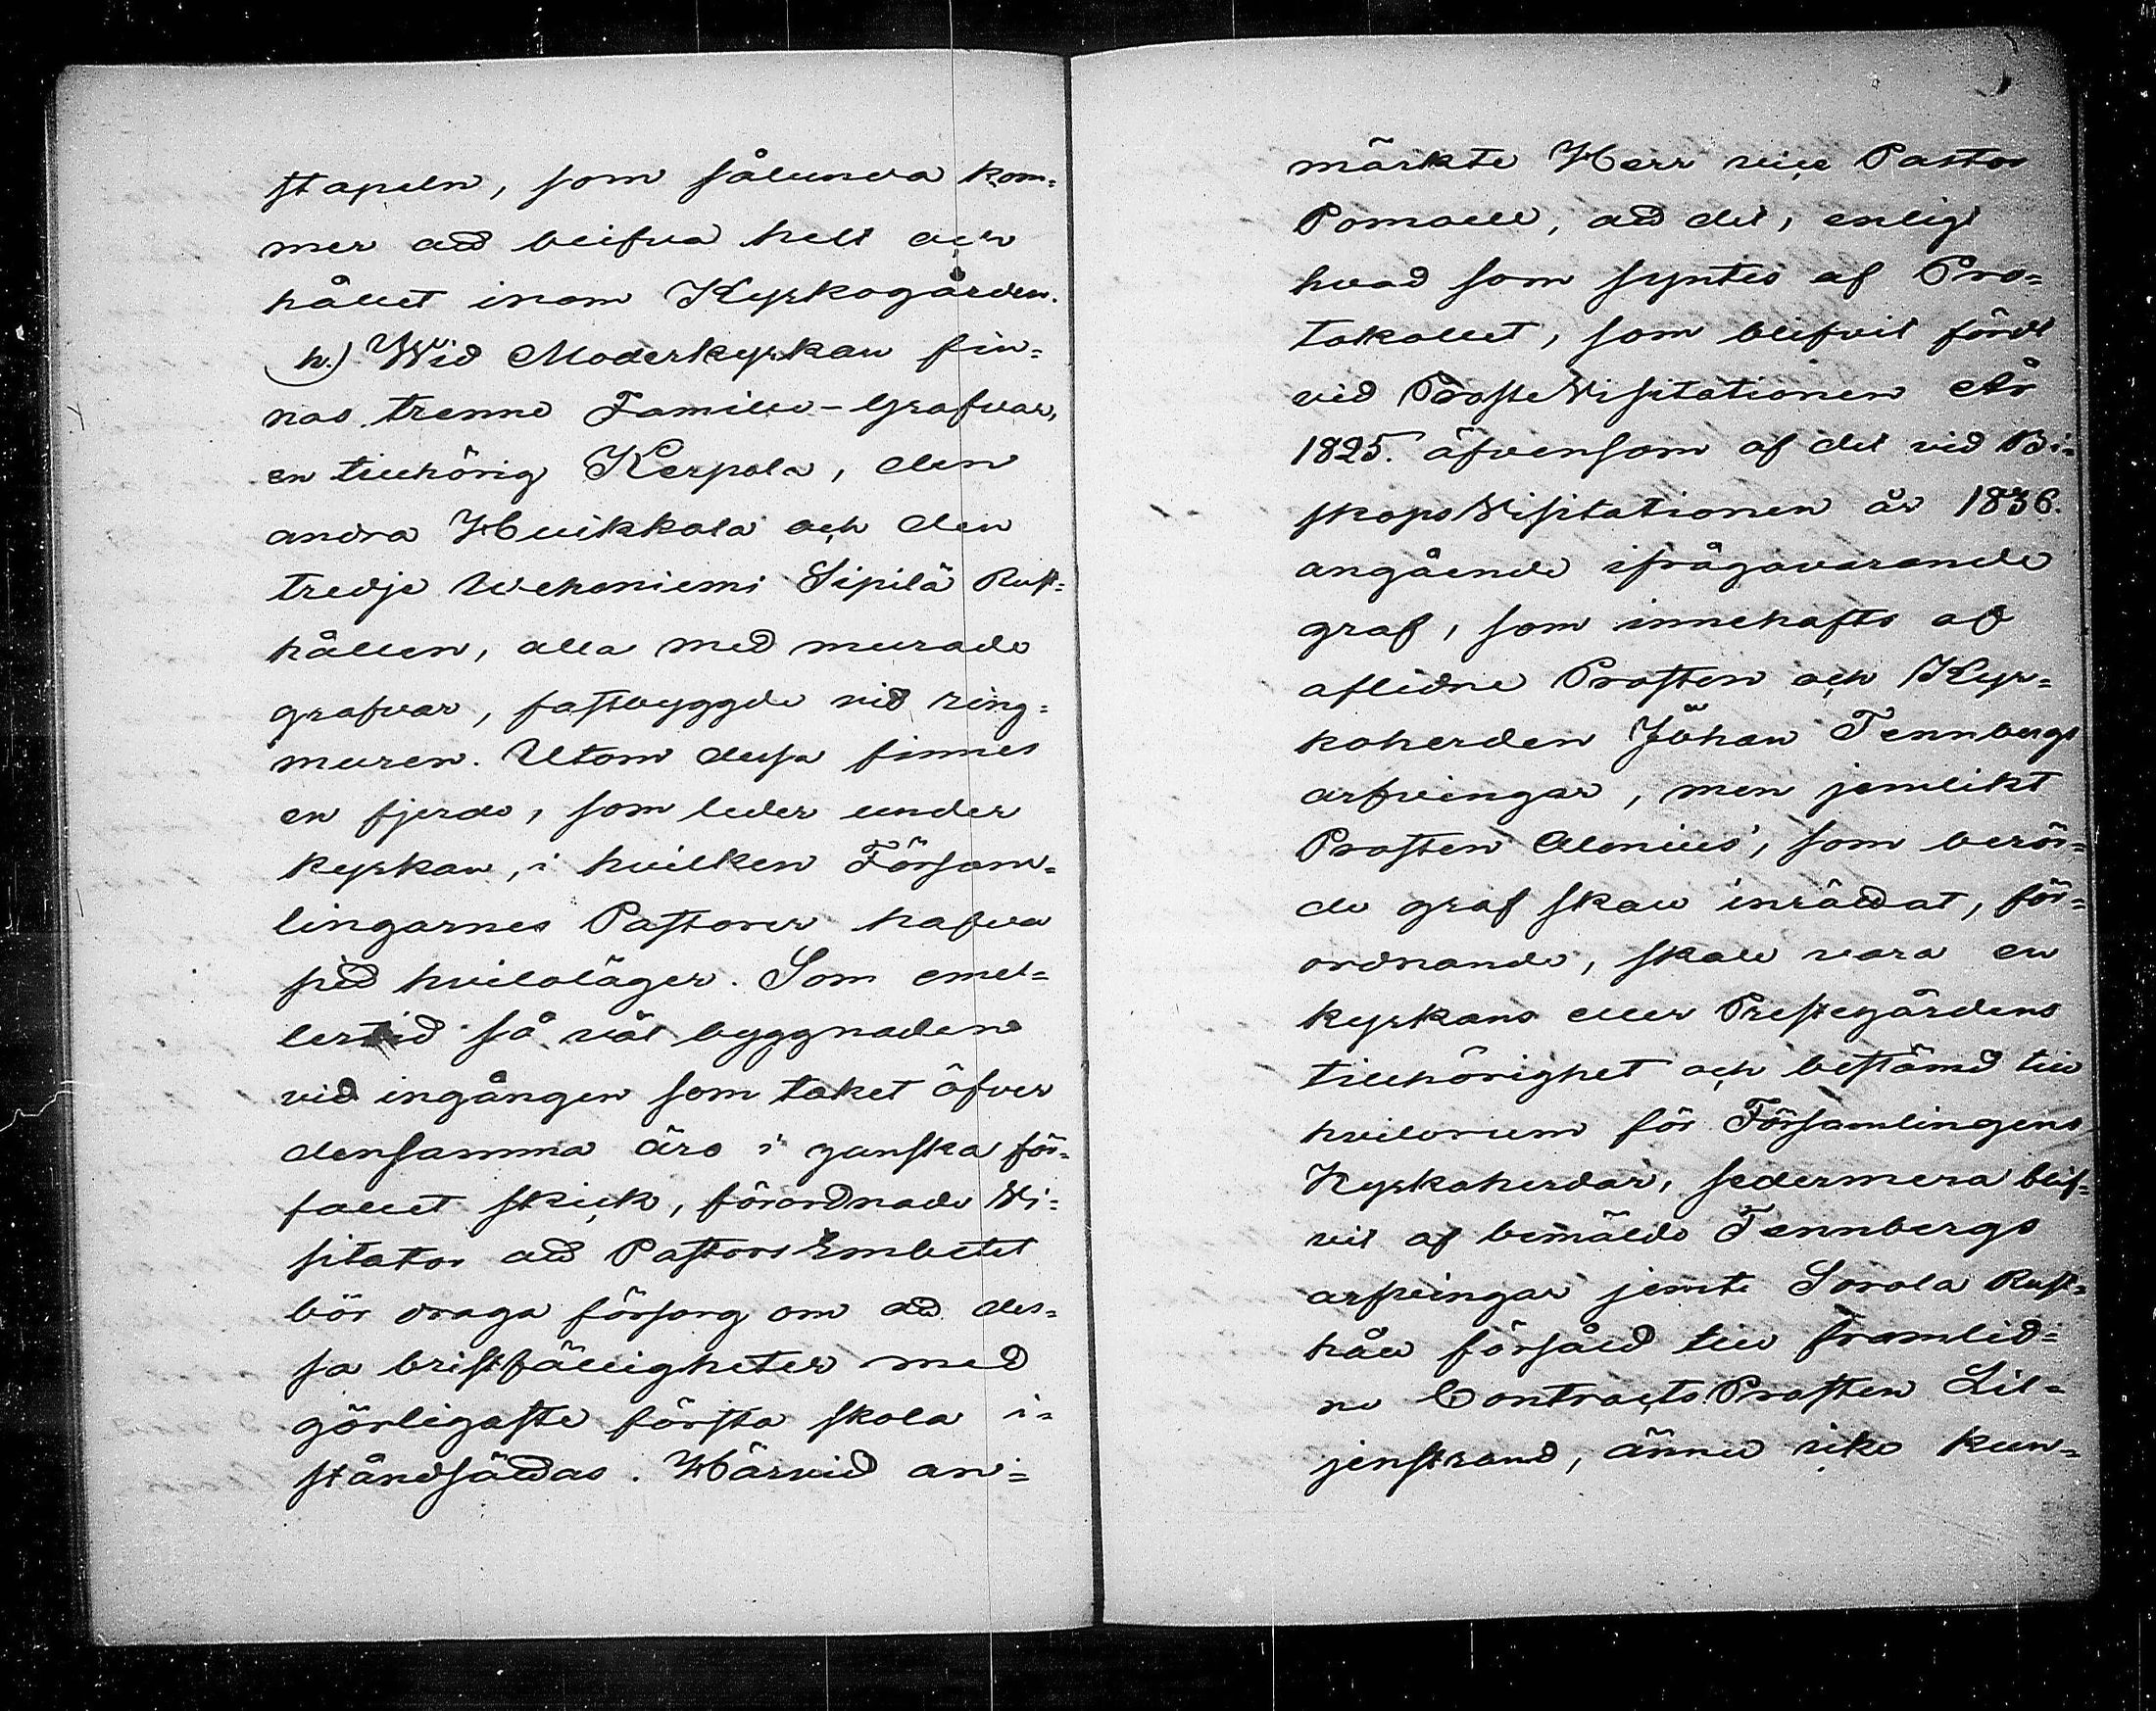 stapeln, som sålunda kom=
mer att blifva helt och
hållet inom Kyrkogården.
h.) Wid Moderkyrkan fin=
nas trenne Famille-Grafvar,
en tillhörig Kerpola, den
andra Huikkala och den
tredje Wehoniemi Sipilä Rust=
hållen, alla med murade
grafvar, fastbyggde vid ring=
muren. Utom dessa finnes
en fjerde, som leder under
kyrkan, i hvilken Försam=
lingarnes Pastorer hafva
sitt hviloläger. Som emel=
lertid så väl byggnaden
vid ingången som taket öfver
densamma äro i ganska för=
fallet skick, förordnade Vi=
sitator att Pastors Embetet
bör draga försorg om att des=
sa bristfälligheter med
görligaste första skola i=
ståndsättas. Härvid an=
märkte Herr vice Pastor
Pomoell, att det, enligt
hvad som syntes af Pro=
tokollet, som blifvit fördt
vid Proste Visitationen År
1825. äfvensom af det vid Bi=
skops Visitationen år 1836.
angående ifrågavarande
graf, som innehafts af
aflidne Prosten och Kyr=
koherden Johan Tennbergs
arfvingar, men jemlikt
Prosten Alenius', som berör=
de graf skall inrättat, för=
ordnande, skall vara en
kyrkans eller Prestegårdens
tillhörighet och bestämd till
hvilorum för Församlingens
Kyrkoherdar, sedermera blif=
vit af bemälde Tennbergs
arfvingar jemte Sorola Rust=
håll försåld till framlid=
ne Contracts Prosten Lil=
jenstrand, ännu icke kun=